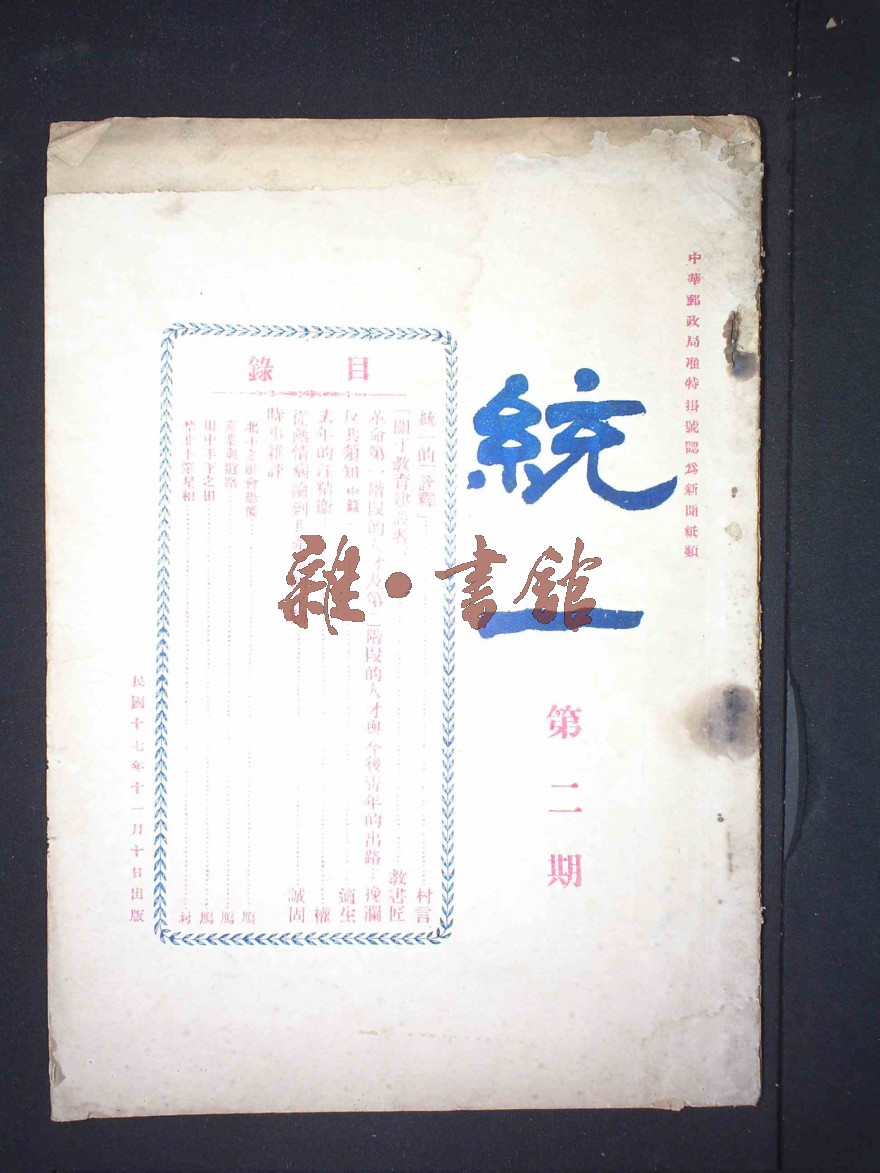 中華郵政局准特掛號認爲新聞紙類
統一
第二期
目錄
統一的「詮釋」……村言
「關于教育建設者……教書匠
革命第一階段的人才及第二階段的人才與今後青年的出路…挽瀾
反共須知……適生
去年的汪精衛……權
從無情病論到……誠固
時事雜評
產業與道路……鴈
田中手下之田……鴈
……村
民國十七年十一月十日出版
雜·書館